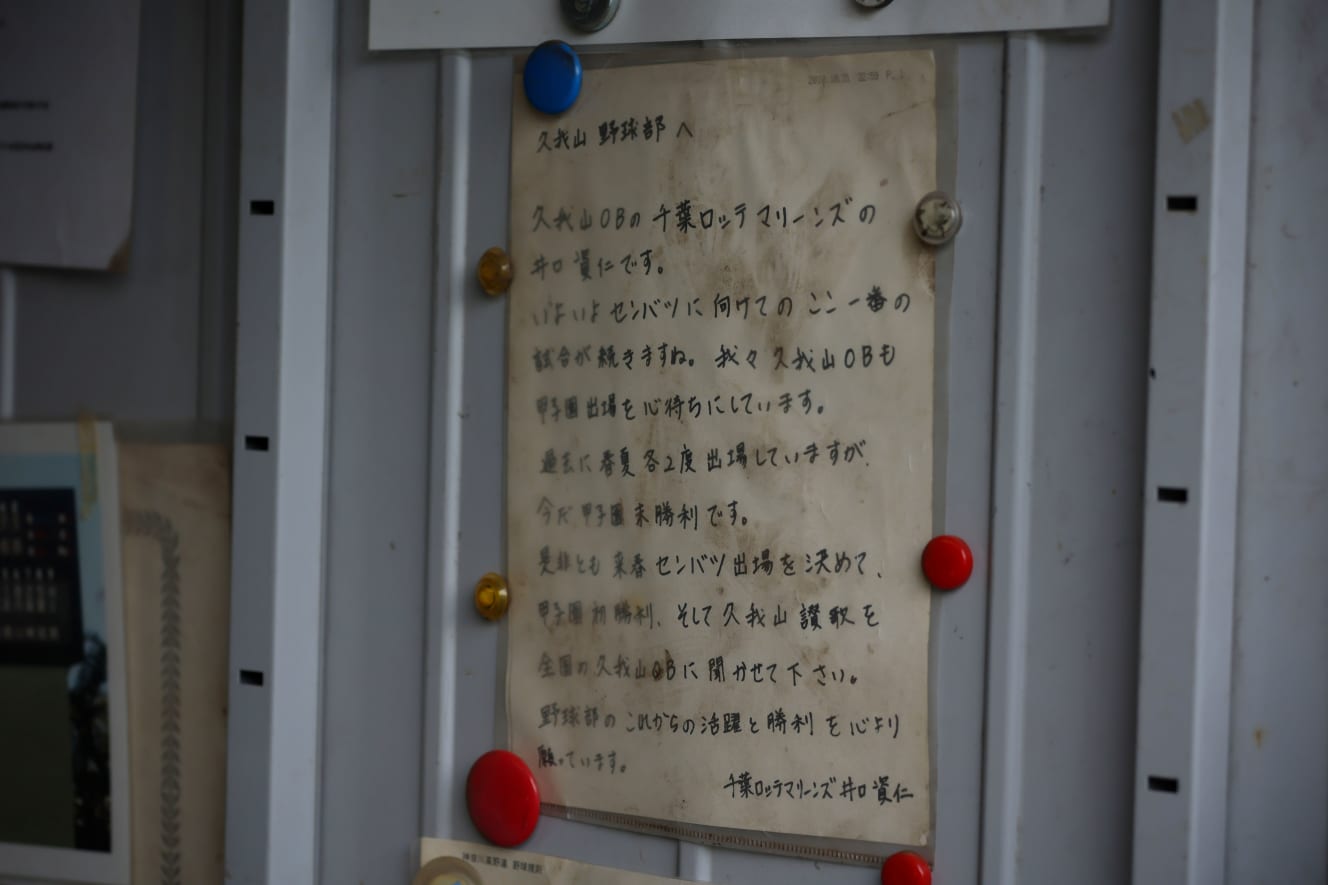 久我山 野球部 へ
久我山OBの 千葉ロッテマリーンズの
井口 資仁です。
いよいよ センバツに 向けての ここ 一番の
試合が 続きますね。 我々 久我山OBも
甲子園 出場を 心待ちにしています。
過去に 春夏 各2度 出場していますが、
今だ 甲子園 未勝利です。
是非とも 来春 センバツ 出場を 決めて、
甲子園 初勝利、 そして 久我山 讃歌を
全国の 久我山OBに 聞かせて 下さい。
野球部の これからの 活躍と 勝利を 心より
願っています。
千葉ロッテマリーンズ 井口 資仁